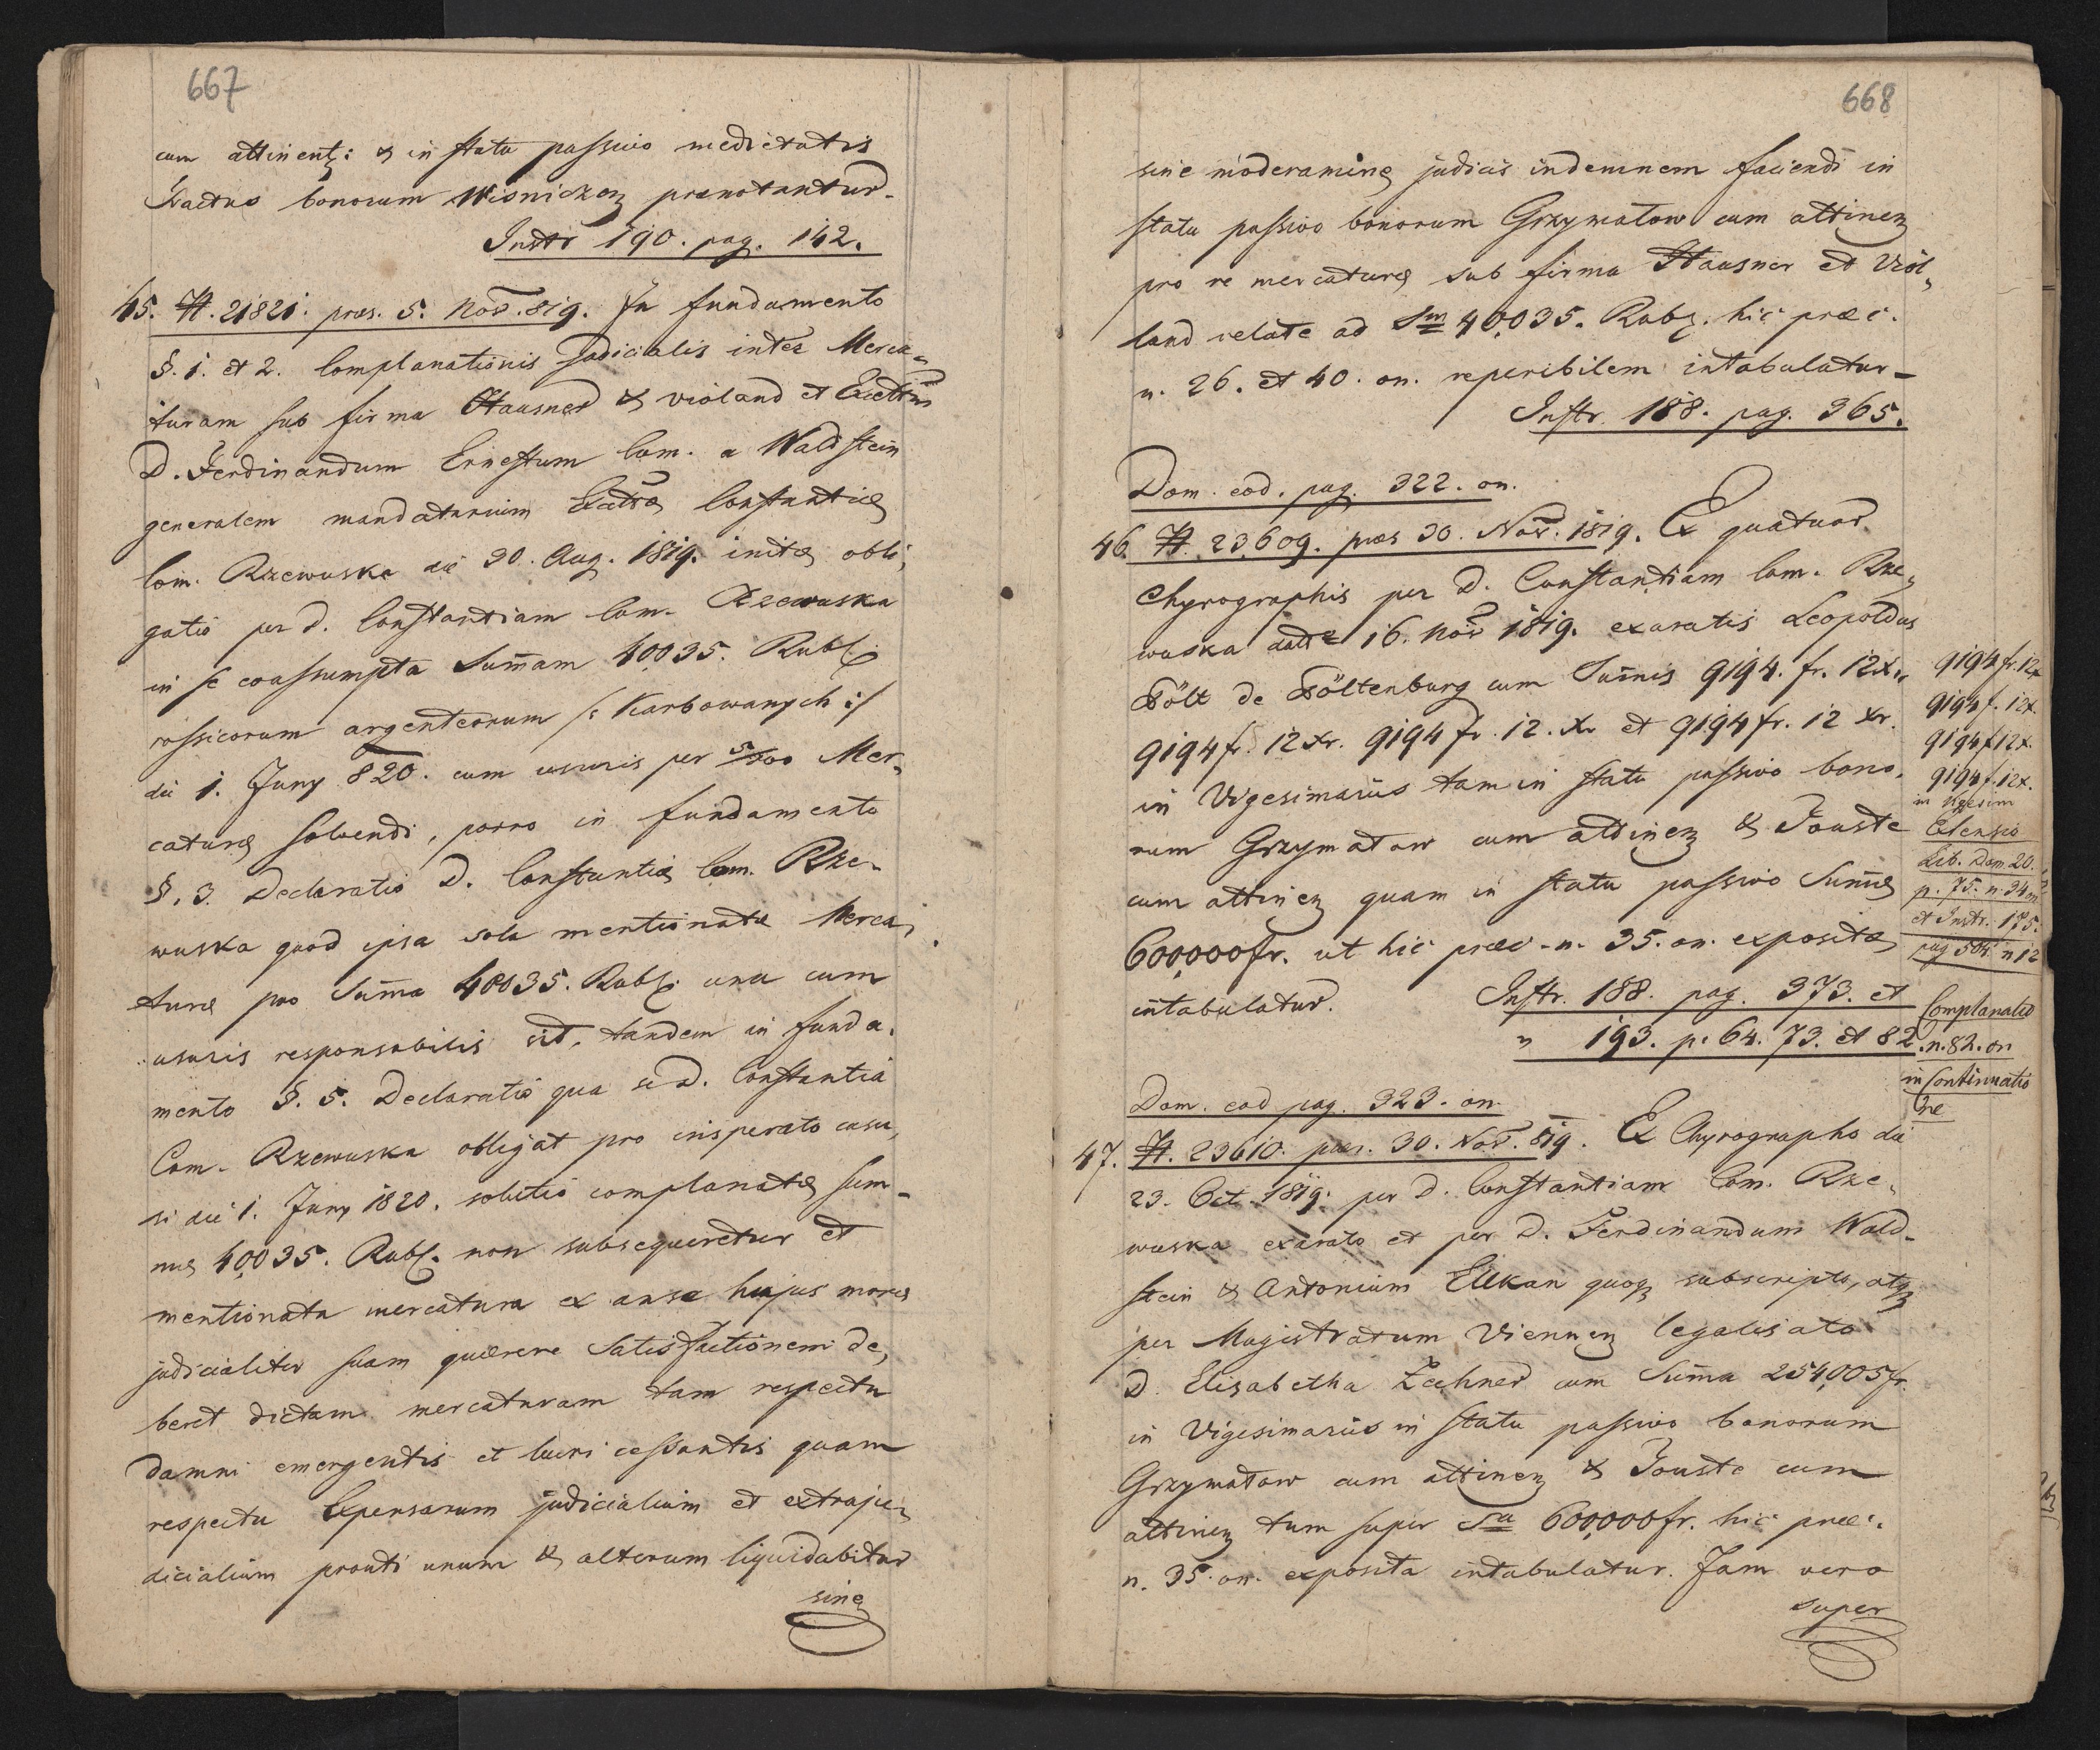 667
cum attinent: & in statu passivo medietatis
Tractus bonorum Wisniczen prenotantur.
Instr 190. pag. 142.
45. N. 21821. præs. 5. Nov. 819. In fundamento
§. 1. et 2. Complanationis Judicialis inter Merca-
turam sub firma Hausner & Violand et
D. Ferdinandum Ernestum Com. a Waldstein
generalem mandatarium Constantiæ
Com. Rzewuska dii 30. Aug. 1819. initæ obli-
gatio per D. Constantiam Com. Rzewuska
in se coassumpta Sum̄am 40,035. Rubl.
rossicorum argenteorum /: Karbowanych :/
dii 1. Juny 820. cum usuris per 5/100 Mer-
caturæ solvendi, porro in fundamento
§. 3. Declaratio D. Constantiæ Com. Rze-
wuska quod ipsa sola mentionatæ Merca-
turæ pro Sum̄a 40035. Rubl. una cum
usuris responsabilis sit, tandem in funda-
mento §. 5. Declaratio qua se D. Constantia
Com. Rzewuska obligat pro insperato casu,
si dii 1. Juny 1820. solutio complanatæ Sum-
mæ 40,035. Rubl. non subsequeretur et
mentionata mercatura ex ansa hujus moræ
judicialiter suam quærere Satisfactionem de-
beret dictam mercaturam tam respectu
damni emergentis et lucri cessantis quam
respectu Expensarum judicialium et extraju-
dicialium prouti unum & alterum liquidabitur
sine
668
sine moderamine judicis indemnem faciendi in
statu passivo bonorum Grzymałow cum attinen
pro re mercaturæ sub firma Hausner et Viol-
land relate ad Sm 40,035. Rubl. hic præc.
n. 26. et 40. on. reperibilem intabulatur.
Instr. 188. pag. 365.
Dom. eod. pag. 322. on.
46. N. 23,609. præs 30. Nov. 1819. Ex quatuor
Chyrographis per D. Constantiam Com. Rze-
wuska ddto 16. Nov 1819. exaratis Leopoldus
Pölt de Pöltenburg cum Sum̄is 9194. fr. 12xr.
9194 fr. 12 xr. 9194 fr. 12. xr et 9194 fr. 12 xr.
in Vigesimariis tam in statu passivo bono-
rum Grzymałow cum attinen & Touste
cum attinen quam in statu passivo Sum̄æ
600,000 fr. ut hic præc. n. 35. on. expositæ
intabulatur.
Instr. 188. pag. 373. et
" 193. p. 64. 73. et 82.
9194 fr. 12x
9194 f. 12x.
9194 f 12x.
9194 f. 12x.
in Vigesim
Extensio
Lib. Dom 20.
p. 75. n. 34 on
et Instr. 175.
pag 504. n 12
Complanatio
n. 82. on
in Continuatio
ne
Dom. eod pag. 323. on.
47. N. 23610. præs. 30. Nov. 819. Ex Chyrographo dii
23. Oct. 1819. per D. Constantiam Com. Rze-
wuska exarato et per D. Ferdinandum Wald-
stein & Antonium Ellkan quoq subscripto, atq
per Magistratum Viennen legalisato
D. Elisabetha Zechner cum Sum̄a 254,005 fr.
in Vigesimariis in statu passivo bonorum
Grzymałow cum attinen & Touste cum
attinen tum super Sa 600,000 fr. hic præc.
n. 35. on. exposita intabulatur. Jam vero
super